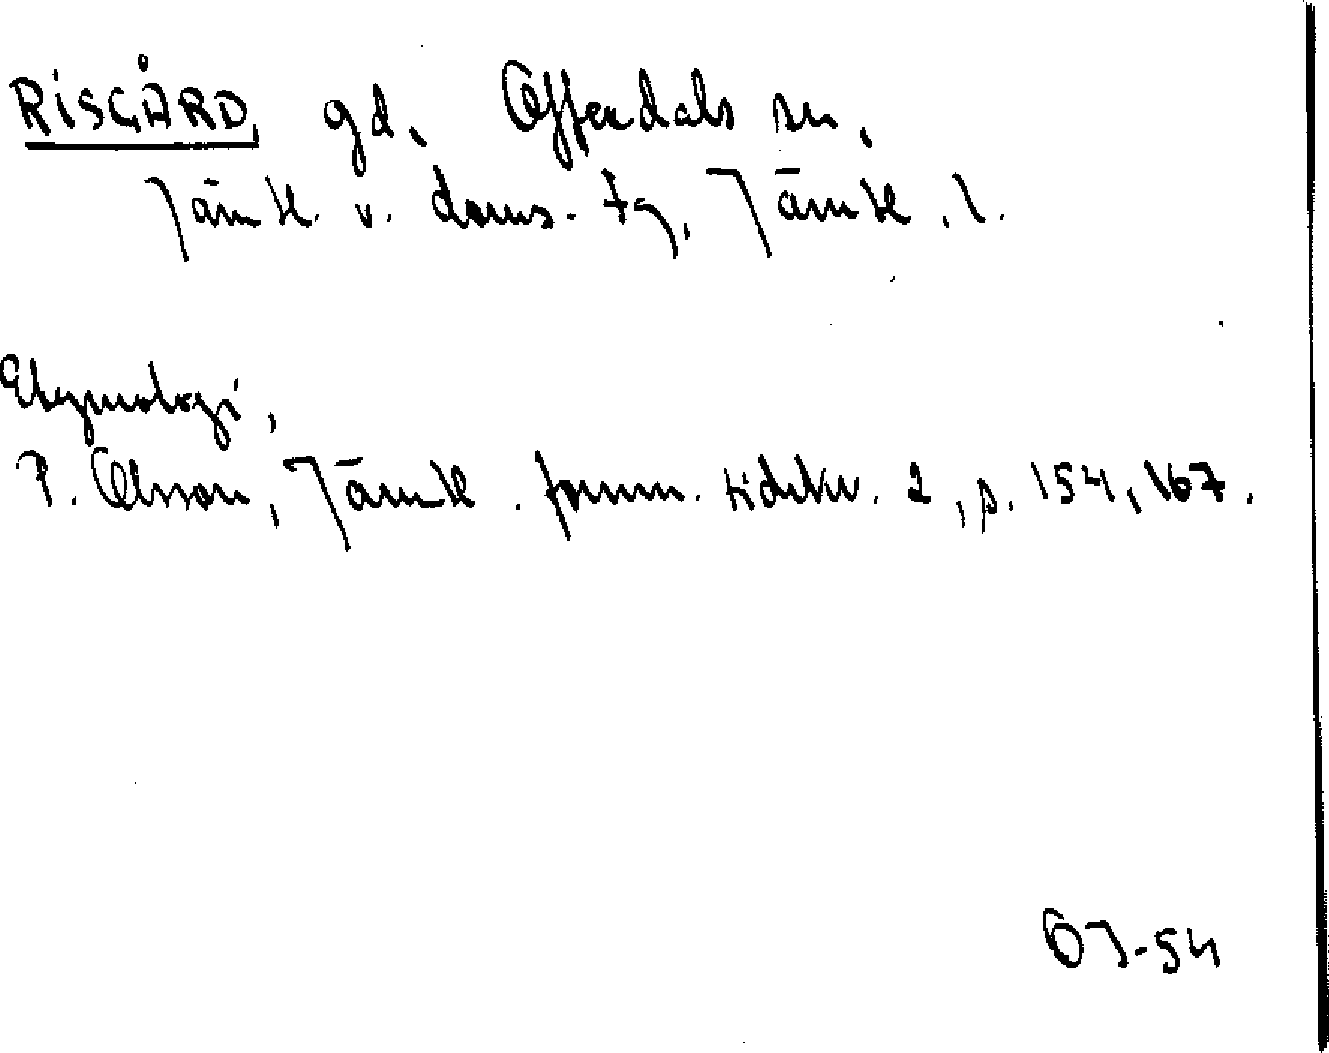 RISGÅRD, gd, Offerdals sn,
Jämtl. v. doms. tg, Jämtl. l.
Etymologi,
P. Olsson, Jämtl. fornm. tidskr. 2, s. 154, 167.
OJ-54